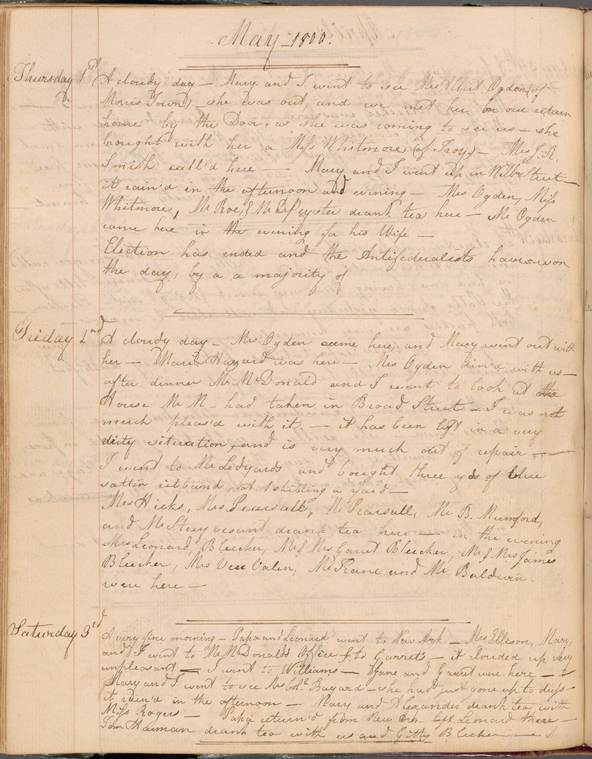 May 1800.
Thursday 1st A cloudy day — Mary and I went to see Mrs Ogden (of
Morris Town) she was out, and we met her on our return
home by the Door, as she was coming to see us — she
brought with her a Miss Whitmore (of Troy) — Mrs J. R.
Smith call'd here — Mary and I went up in Street —
it rain'd in the afternoon and evening — Mrs Ogden, Miss
Whitmore, Mr Roe, & Mr drank tea here — Mr Ogden
came here in the evening for his Wife —
Election has ended and the Antifederalists have won
the day, by a a majority of
Friday 2nd A cloudy day — Mrs Ogden came here, and Mary went out with
her — Maria Hazard was here — Mrs Ogden din'd with us —
after dinner Mr McDonald and I went to look at the
House Mr M— had taken in Broad Street — I was not
much pleas'd with it, — it has been left in a very
dirty situation, and is very much out of repair —
I went to Mr Ledyards and bought three yds of blue
sattin ribband at 1 shilling a yard —
Mrs Hicks, Mrs Pearsall, Mr Pearsall, Mr B. Mumford,
and Mr drank tea here — in the evening
Mrs Leonard, Bleecker, Mr & Mrs Garret Bleecker, Mr & Mrs James
Bleecker, Mrs Van Mr and Mr Baldwin.
were here —
Saturday 3rd A very fine morning — Papa and Leonard went to New Ark — Mrs Ellison, Mary,
and I went to Mr McDonalds Office & to Garrets — it clouded up very
unpleasant — I went to Williams — Jane and Garret were here —
Mary and I went to see Mrs Bayard — she had just gone up to
it rain'd in the afternoon — Mary and Alexander drank tea with
Miss Rogers — Papa return'd from New Ark left Leonard there —
Tom Harman drank tea with us and Gitty Bleecker —